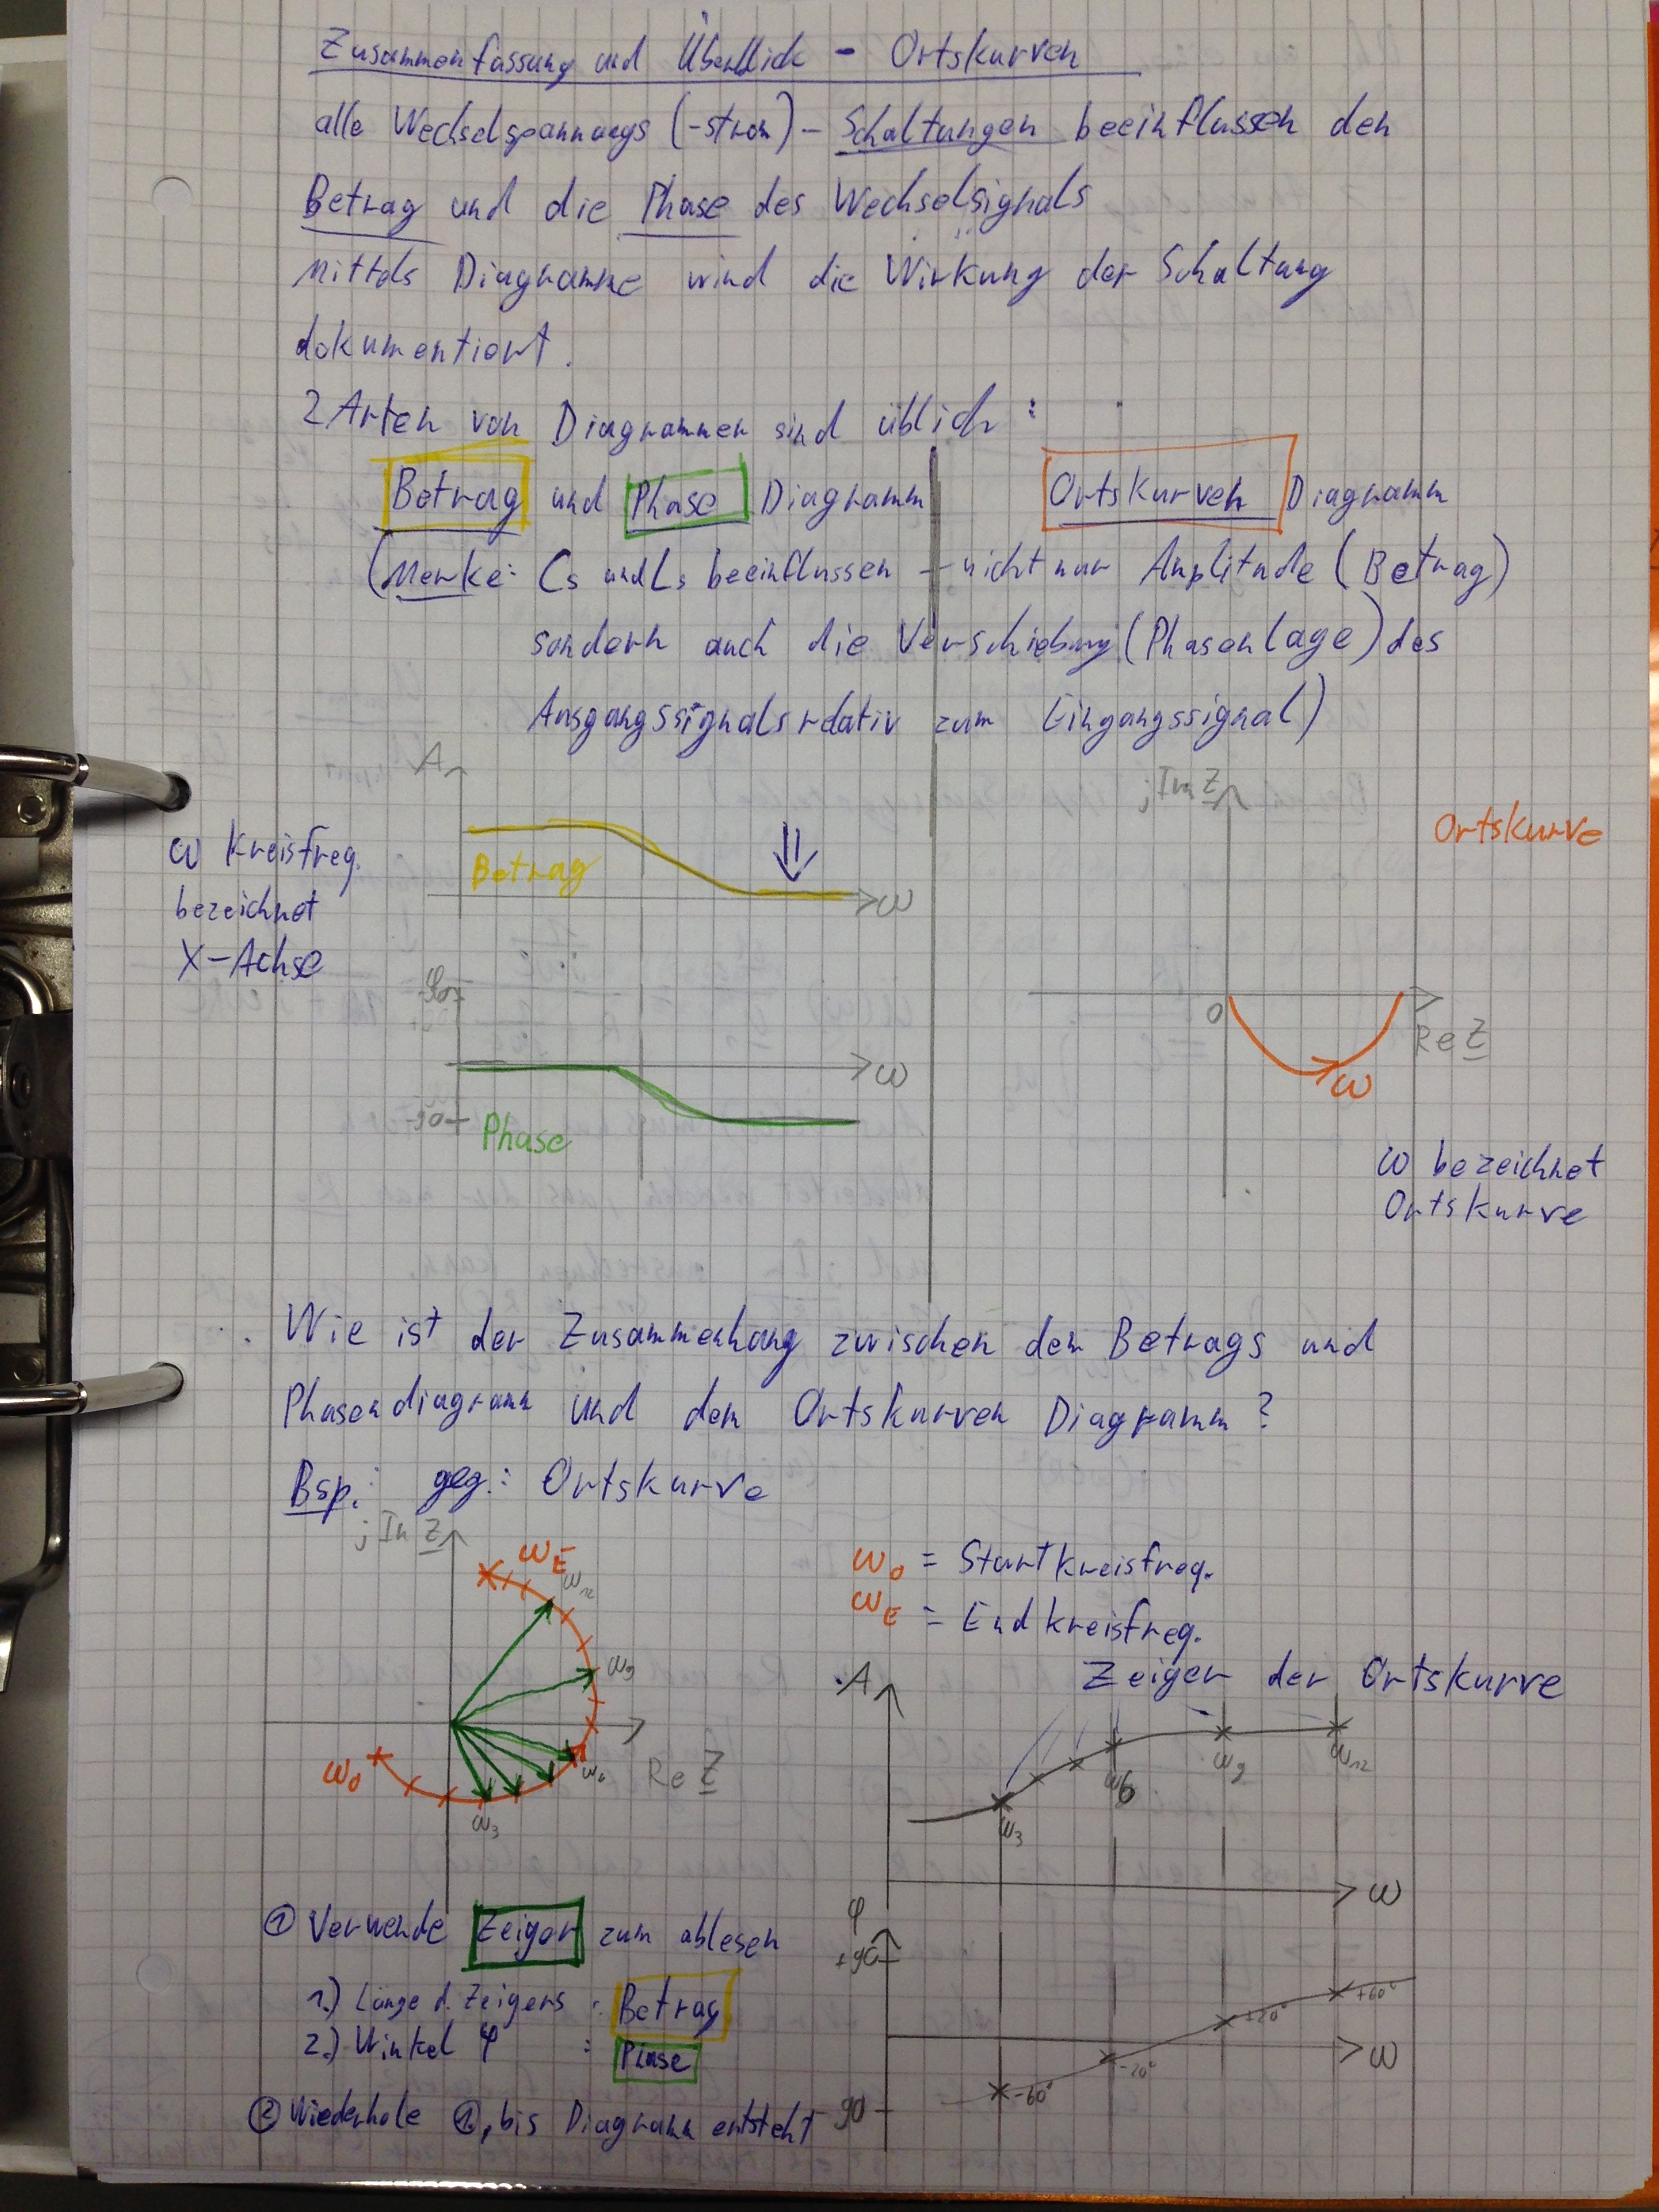 Zusammenfassung und Überblick - Ortskurven
alle Wechselspannungs (-strom) - Schaltungen beeinflussen den
Betrag und die Phase des Wechselsignals
Mittels Diagramme wird die Wirkung der Schaltung
dokumentiert.
2 Arten von Diagrammen sind üblich:
Betrag und Phase Diagramm
Ortskurven Diagramm
(Merke: Cs und Ls beeinflussen nicht nur Amplitude (Betrag)
sondern auch die Verschiebung (Phasenlage) des
Ausgangssignals relativ zum Eingangssignal)
A
Betrag
ω
ω Kreisfreq.
bezeichnet
X-Achse
90
ω
-90
Phase
j Im Z
Ortskurve
0
Re Z
ω
ω bezeichnet
Ortskurve
Wie ist der Zusammenhang zwischen dem Betrags und
Phasendiagramm und dem Ortskurven Diagramm?
Bsp.: geg.: Ortskurve
j Im Z
ωE
ω12
ω9
ω0
Re Z
ω6
ω3
ω0 = Startkreisfreq.
ωE = Endkreisfreq.
Zeiger der Ortskurve
A
ω3
ω6
ω9
ω12
ω
① Verwende Zeiger zum ablesen
1.) Länge d. Zeigers : Betrag
2.) Winkel φ : Phase
② Wiederhole ①, bis Diagramm entsteht
φ
+90
-60°
-20°
+20°
+60°
ω
90